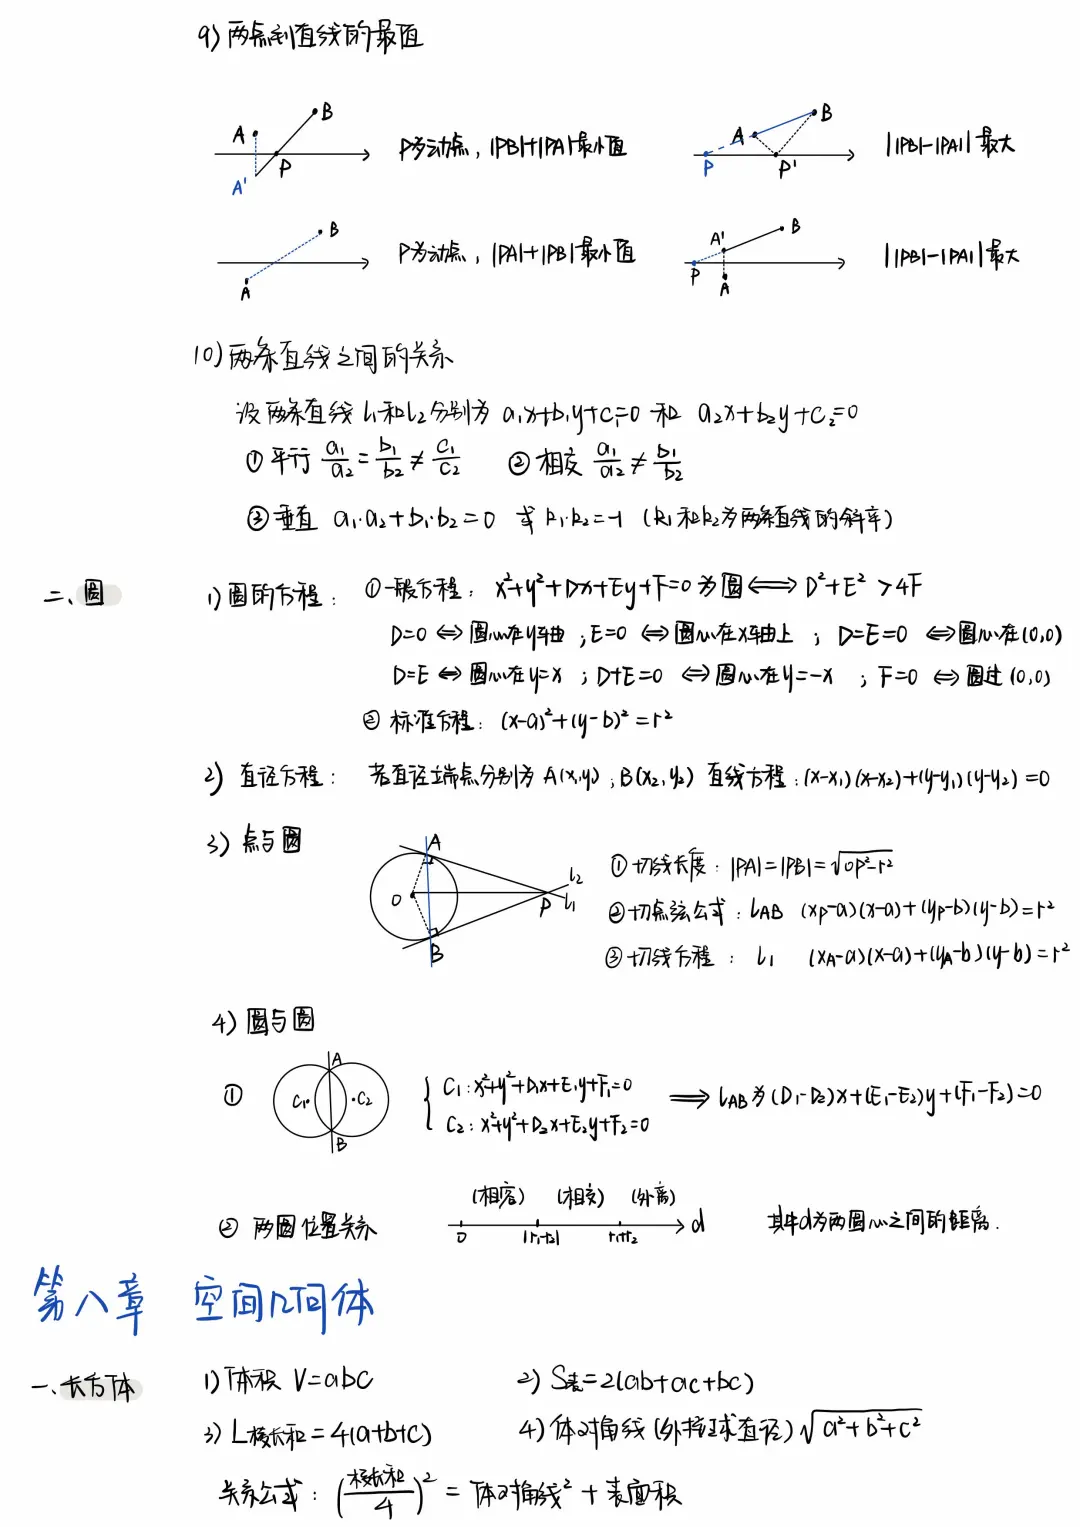 9) 两点到直线的最值
A B P A'
P为动点，|PB|+|PA|最小值
A B P P'
||PB|-|PA||最大
B A
P为动点，|PA|+|PB|最小值
A' B P A
||PB|-|PA||最大
10) 两条直线之间的关系
设两条直线 l₁和l₂分别为 a₁x+b₁y+c₁=0 和 a₂x+b₂y+c₂=0
① 平行 a₁/a₂ = b₁/b₂ ≠ c₁/c₂ ② 相交 a₁/a₂ ≠ b₁/b₂
③ 垂直 a₁·a₂+b₁·b₂=0 或 k₁·k₂=-1 (k₁和k₂为两条直线的斜率)
二、圆
1) 圆的方程： ①一般方程：x²+y²+Dx+Ey+F=0 为圆 ⟺ D²+E² > 4F
D=0 ⇔ 圆心在y轴；E=0 ⇔ 圆心在x轴上；D=E=0 ⇔ 圆心在(0,0)
D=E ⇔ 圆心在y=x；D+E=0 ⇔ 圆心在y=-x；F=0 ⇔ 圆过(0,0)
② 标准方程：(x-a)²+(y-b)²=r²
2) 直径方程： 若直径端点分别为 A(x,y)；B(x₂,y₂) 直线方程：(x-x₁)(x-x₂)+(y-y₁)(y-y₂)=0
3) 点与圆
A O B P l₂ l₁
① 切线长度：|PA|=|PB|=√OP²-r²
② 切点弦公式：lAB (xP-a)(x-a)+(yP-b)(y-b)=r²
③ 切线方程： l₁ (xA-a)(x-a)+(yA-b)(y-b)=r²
4) 圆与圆
① A C₁ C₂ B
{ C₁: x²+y²+D₁x+E₁y+F₁=0
C₂: x²+y²+D₂x+E₂y+F₂=0
⟹ lAB为(D₁-D₂)x+(E₁-E₂)y+(F₁-F₂)=0
② 两圆位置关系
(相容) (相交) (外离)
0 |r₁-r₂| r₁+r₂ d
其中d为两圆心之间的距离.
第八章 空间几何体
一、长方体
1) 体积 V=abc 2) S表=2(ab+ac+bc)
3) L棱长和=4(a+b+c) 4) 体对角线(外接球直径)√a²+b²+c²
关系公式：(棱长和/4)² = 体对角线² + 表面积